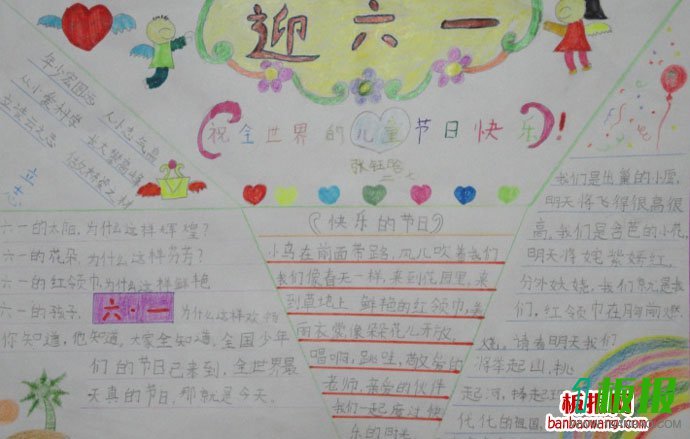 迎六一
祝全世界的儿童节日快乐!
年少宏图志
从小志气高
从小爱科学
长大攀高峰
立凌云之志
立志
(快乐的节日)
六一的太阳,为什么这样辉煌?
六一的花朵,为什么这样芬芳?
六一的红领巾,为什么这样鲜艳
六一的孩子,六·一为什么这样欢
你知道,他知道,大家全知道,全国少年
们的节日已来到,全世界最
天真的节日,那就是今天。
小鸟在前面带路,风儿吹着我们
我们像春天一样,来到花园里,来
到草地上,鲜艳的红领巾,美
丽衣裳像朵朵花儿开放,
唱啊,跳哇,敬爱的
老师,亲爱的伙伴
我们一起度过快
乐的
我们是出巢的小鹰,
明天将飞得很高很
高,我们是含苞的小花,
明天将姹紫嫣红,
分外妖娆,我们就是我
们,红领巾在胸前燃
烧,请看明天我们
将举起山,挑
起河,捧起
化化的祖国
板报
banbaowang.com